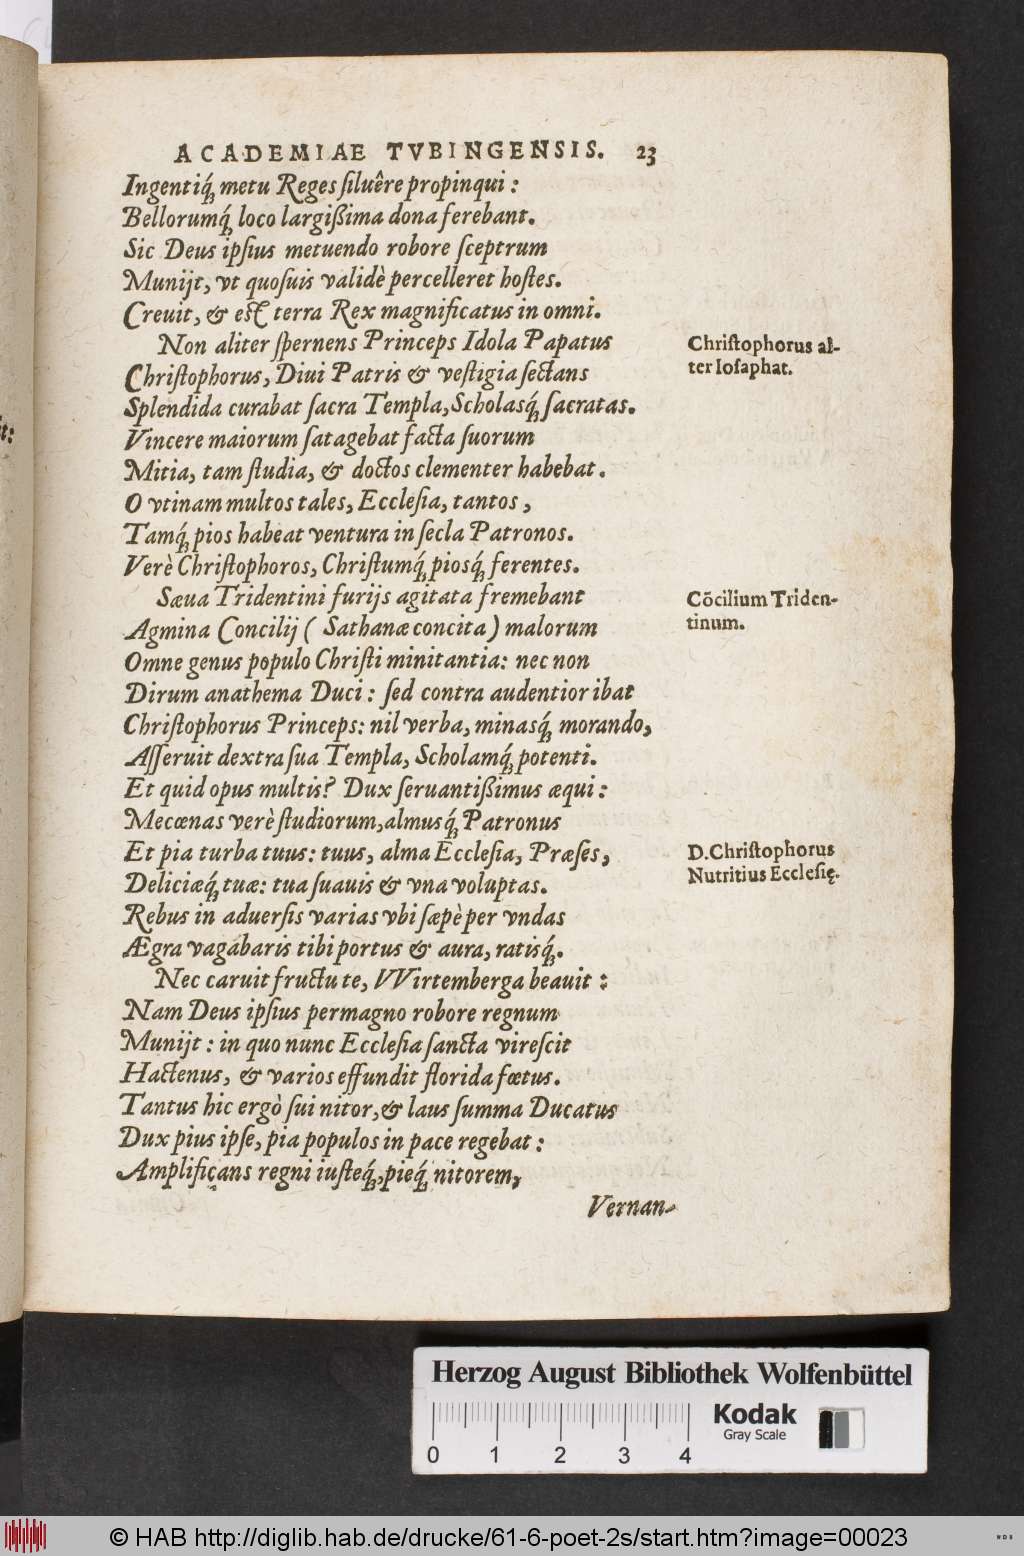 ACADEMIAE TVBINGENSIS. 23
Ingentiq́; metu Reges ſiluêre propinqui:
Bellorumq́; loco largißima dona ferebant.
Sic Deus ipſius metuendo robore ſceptrum
Munijt, vt quoſuis validè percelleret hoſtes.
Creuit, & eſt terra Rex magnificatus in omni.
Non aliter ſpernens Princeps Idola Papatus
Chriſtophorus, Diui Patris & veſtigia ſectans
Splendida curabat ſacra Templa, Scholasq́; ſacratas.
Vincere maiorum ſatagebat facta ſuorum
Mitia, tam ſtudia, & doctos clementer habebat.
O vtinam multos tales, Eccleſia, tantos,
Tamq́; pios habeat ventura in ſecla Patronos.
Verè Chriſtophoros, Chriſtumq́; piosq́; ferentes.
Sæua Tridentini furijs agitata fremebant
Agmina Concilij (Sathanæ concita) malorum
Omne genus populo Chriſti minitantia: nec non
Dirum anathema Duci: ſed contra audentior ibat
Chriſtophorus Princeps: nil verba, minasq́; morando,
Aſſeruit dextra ſua Templa, Scholamq́; potenti.
Et quid opus multis? Dux ſeruantißimus æqui:
Mecœnas verè ſtudiorum, almusq́; Patronus
Et pia turba tuus: tuus, alma Eccleſia, Præſes,
Deliciæq́; tuæ: tua ſuauis & vna voluptas.
Rebus in aduerſis varias vbi ſæpè per vndas
Ægra vagabaris tibi portus & aura, ratisq́;.
Nec caruit fructu te, VVirtemberga beauit:
Nam Deus ipſius permagno robore regnum
Munijt: in quo nunc Eccleſia ſancta vireſcit
Hactenus, & varios effundit florida fœtus.
Tantus hic ergò ſui nitor, & laus ſumma Ducatus
Dux pius ipſe, pia populos in pace regebat:
Amplificans regni iuſteq́;, pieq́; nitorem,
Vernan-
Chriſtophorus al-
ter Ioſaphat.
Cōcilium Triden-
tinum.
D. Chriſtophorus
Nutritius Eccleſię.
Herzog August Bibliothek Wolfenbüttel
Kodak
Gray Scale
0 1 2 3 4
© HAB http://diglib.hab.de/drucke/61-6-poet-2s/start.htm?image=00023